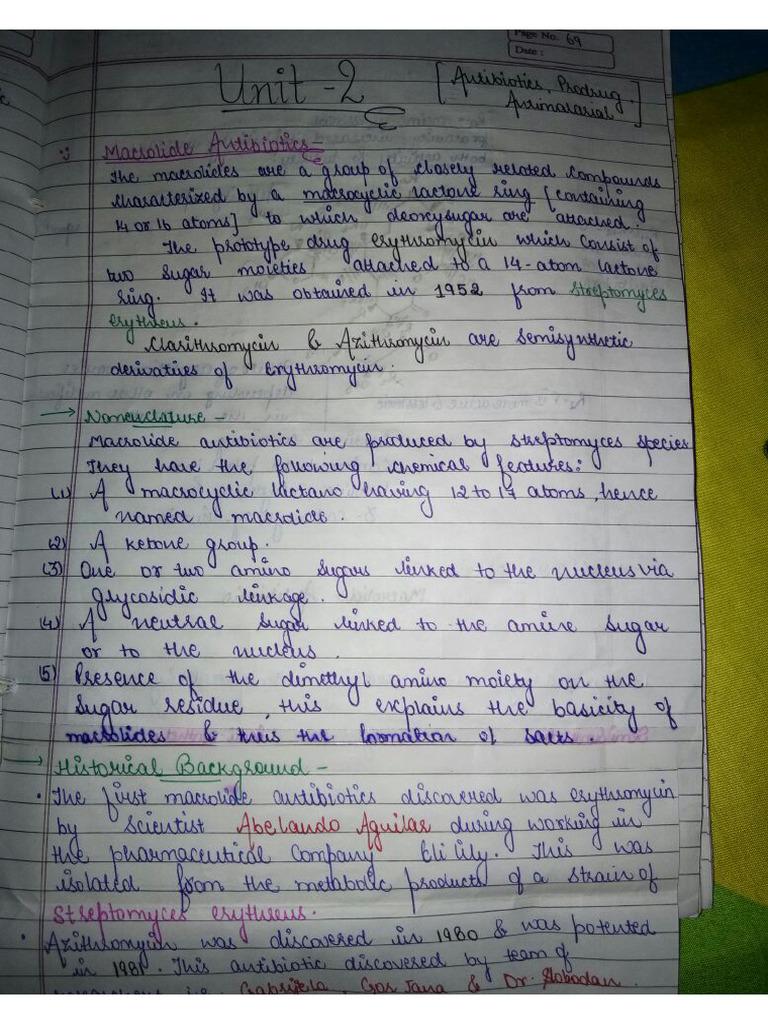 Page No. 69
Date :
Unit-2 [Antibiotics, Prodrug,
Antimalarial]
Macrolide Antibiotics-
The macrolides are a group of closely related compounds
characterized by a macrocyclic lactone ring [containing
14 or 16 atoms] to which deoxysugar are attached.
The prototype drug erythromycin which consist of
two sugar moieties attached to a 14-atom lactone
ring. It was obtained in 1952 from Streptomyces
erythreus.
Clarithromycin & Azithromycin are semisynthetic
derivatives of Erythromycin.
→ Nomenclature -
Macrolide antibiotics are produced by streptomyces species.
They have the following chemical features:
(1) A macrocyclic lactano having 12 to 17 atoms, hence
named macrolide.
(2) A ketone group.
(3) One or two amino sugars linked to the nucleus via
glycosidic linkage.
(4) A neutral sugar linked to the amine sugar
or to the nucleus.
(5) Presence of the dimethyl amino moiety on the
sugar residue, this explains the basicity of
macrolides & theis the formation of salts
→ Historical Background -
• The first macrolide antibiotics discovered was erythromycin
by scientist Abelando Aguilar dusing working in
the pharmaceutical company Eli lily. This was
isolated from the metabolic products of a strain of
Streptomyces erythreus.
• Azithromycin was discovered in 1980 & was potented
in 1981. This antibiotic discovered by team of
Gabrijela, Gor Jana & Dr. Slobodan.